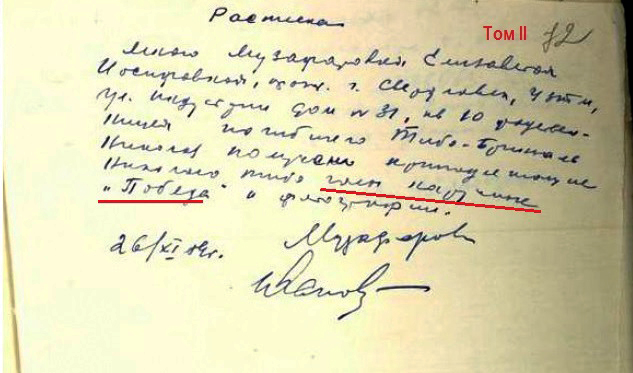 Расписка
Том II 82
Мною Музафаровой Елизаветой
Иосифовной, прож. г. Свердловск,
ул. Индустрии дом № 31, кв 10 родствен-
ницей погибшего Тибо-Бриньоль
Николая получены принадлежащие
Николаю Тибо часы наручные
"Победа" и фотографии.
26/XI 59г. Музафарова
Иванов